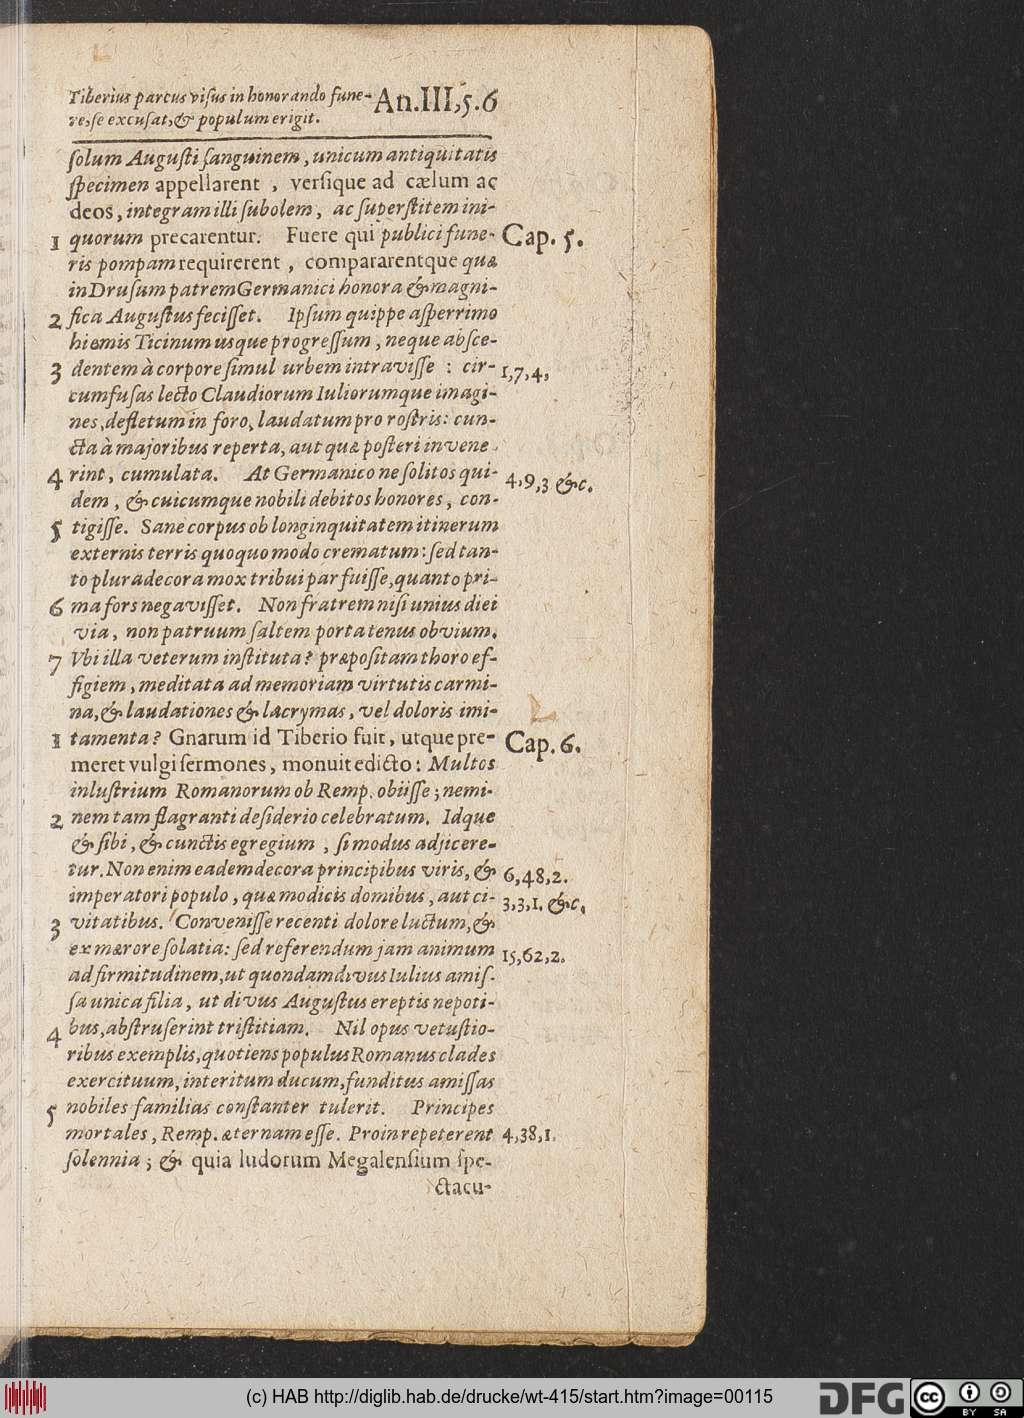 Tiberius parcus visus in honorando fune- An.III,5.6
re,se excusat,& populum erigit.
solum Augusti sanguinem, unicum antiquitatis
specimen appellarent , versique ad cælum ac
deos, integram illi subolem, ac superstitem ini-
1 quorum precarentur. Fuere qui publici fune- Cap. 5.
ris pompam requirerent , compararentque quæ
in Drusum patrem Germanici honora & magni-
2 fica Augustus fecisset. Ipsum quippe asperrimo
hiemis Ticinum usque progressum, neque absce-
3 dentem à corpore simul urbem intravisse : cir- 1,7,4,
cumfusas lecto Claudiorum Iuliorumque imagi-
nes,defletum in foro, laudatum pro rostris: cun-
cta à majoribus reperta, aut quæ posteri invene
4 rint, cumulata. At Germanico ne solitos qui- 4,9,3 &c.
dem, & cuicumque nobili debitos honores, con-
5 tigisse. Sane corpus ob longinquitatem itinerum
externis terris quoquo modo crematum: sed tan-
to plura decora mox tribui par fuisse,quanto pri-
6 ma fors negavisset. Non fratrem nisi unius diei
via, non patruum saltem porta tenus obvium.
7 Vbi illa veterum instituta? præpositam thoro ef-
figiem, meditata ad memoriam virtutis carmi-
na,& laudationes & lacrymas, vel doloris imi-
1 tamenta? Gnarum id Tiberio fuit, utque pre- Cap. 6.
meret vulgi sermones, monuit edicto: Multos
inlustrium Romanorum ob Remp. obiisse; nemi-
2 nem tam flagranti desiderio celebratum. Idque
& sibi, & cunctis egregium , si modus adjicere-
tur. Non enim eadem decora principibus viris, & 6,48,2.
imperatori populo, quæ modicis domibus, aut ci- 3,3,1. &c.
3 vitatibus. Convenisse recenti dolore luctum,&
ex mærore solatia: sed referendum jam animum 15,62,2.
ad firmitudinem,ut quondam divus Iulius amis-
sa unica filia, ut divus Augustus ereptis nepoti-
4 bus,abstruserint tristitiam. Nil opus vetustio-
ribus exemplis,quotiens populus Romanus clades
exercituum, interitum ducum,funditus amissas
5 nobiles familias constanter tulerit. Principes
mortales, Remp. æternam esse. Proin repeterent 4,38,1.
solennia; & quia ludorum Megalensium spe-
ctacu-
(c) HAB http://diglib.hab.de/drucke/wt-415/start.htm?image=00115
DFG
cc BY SA